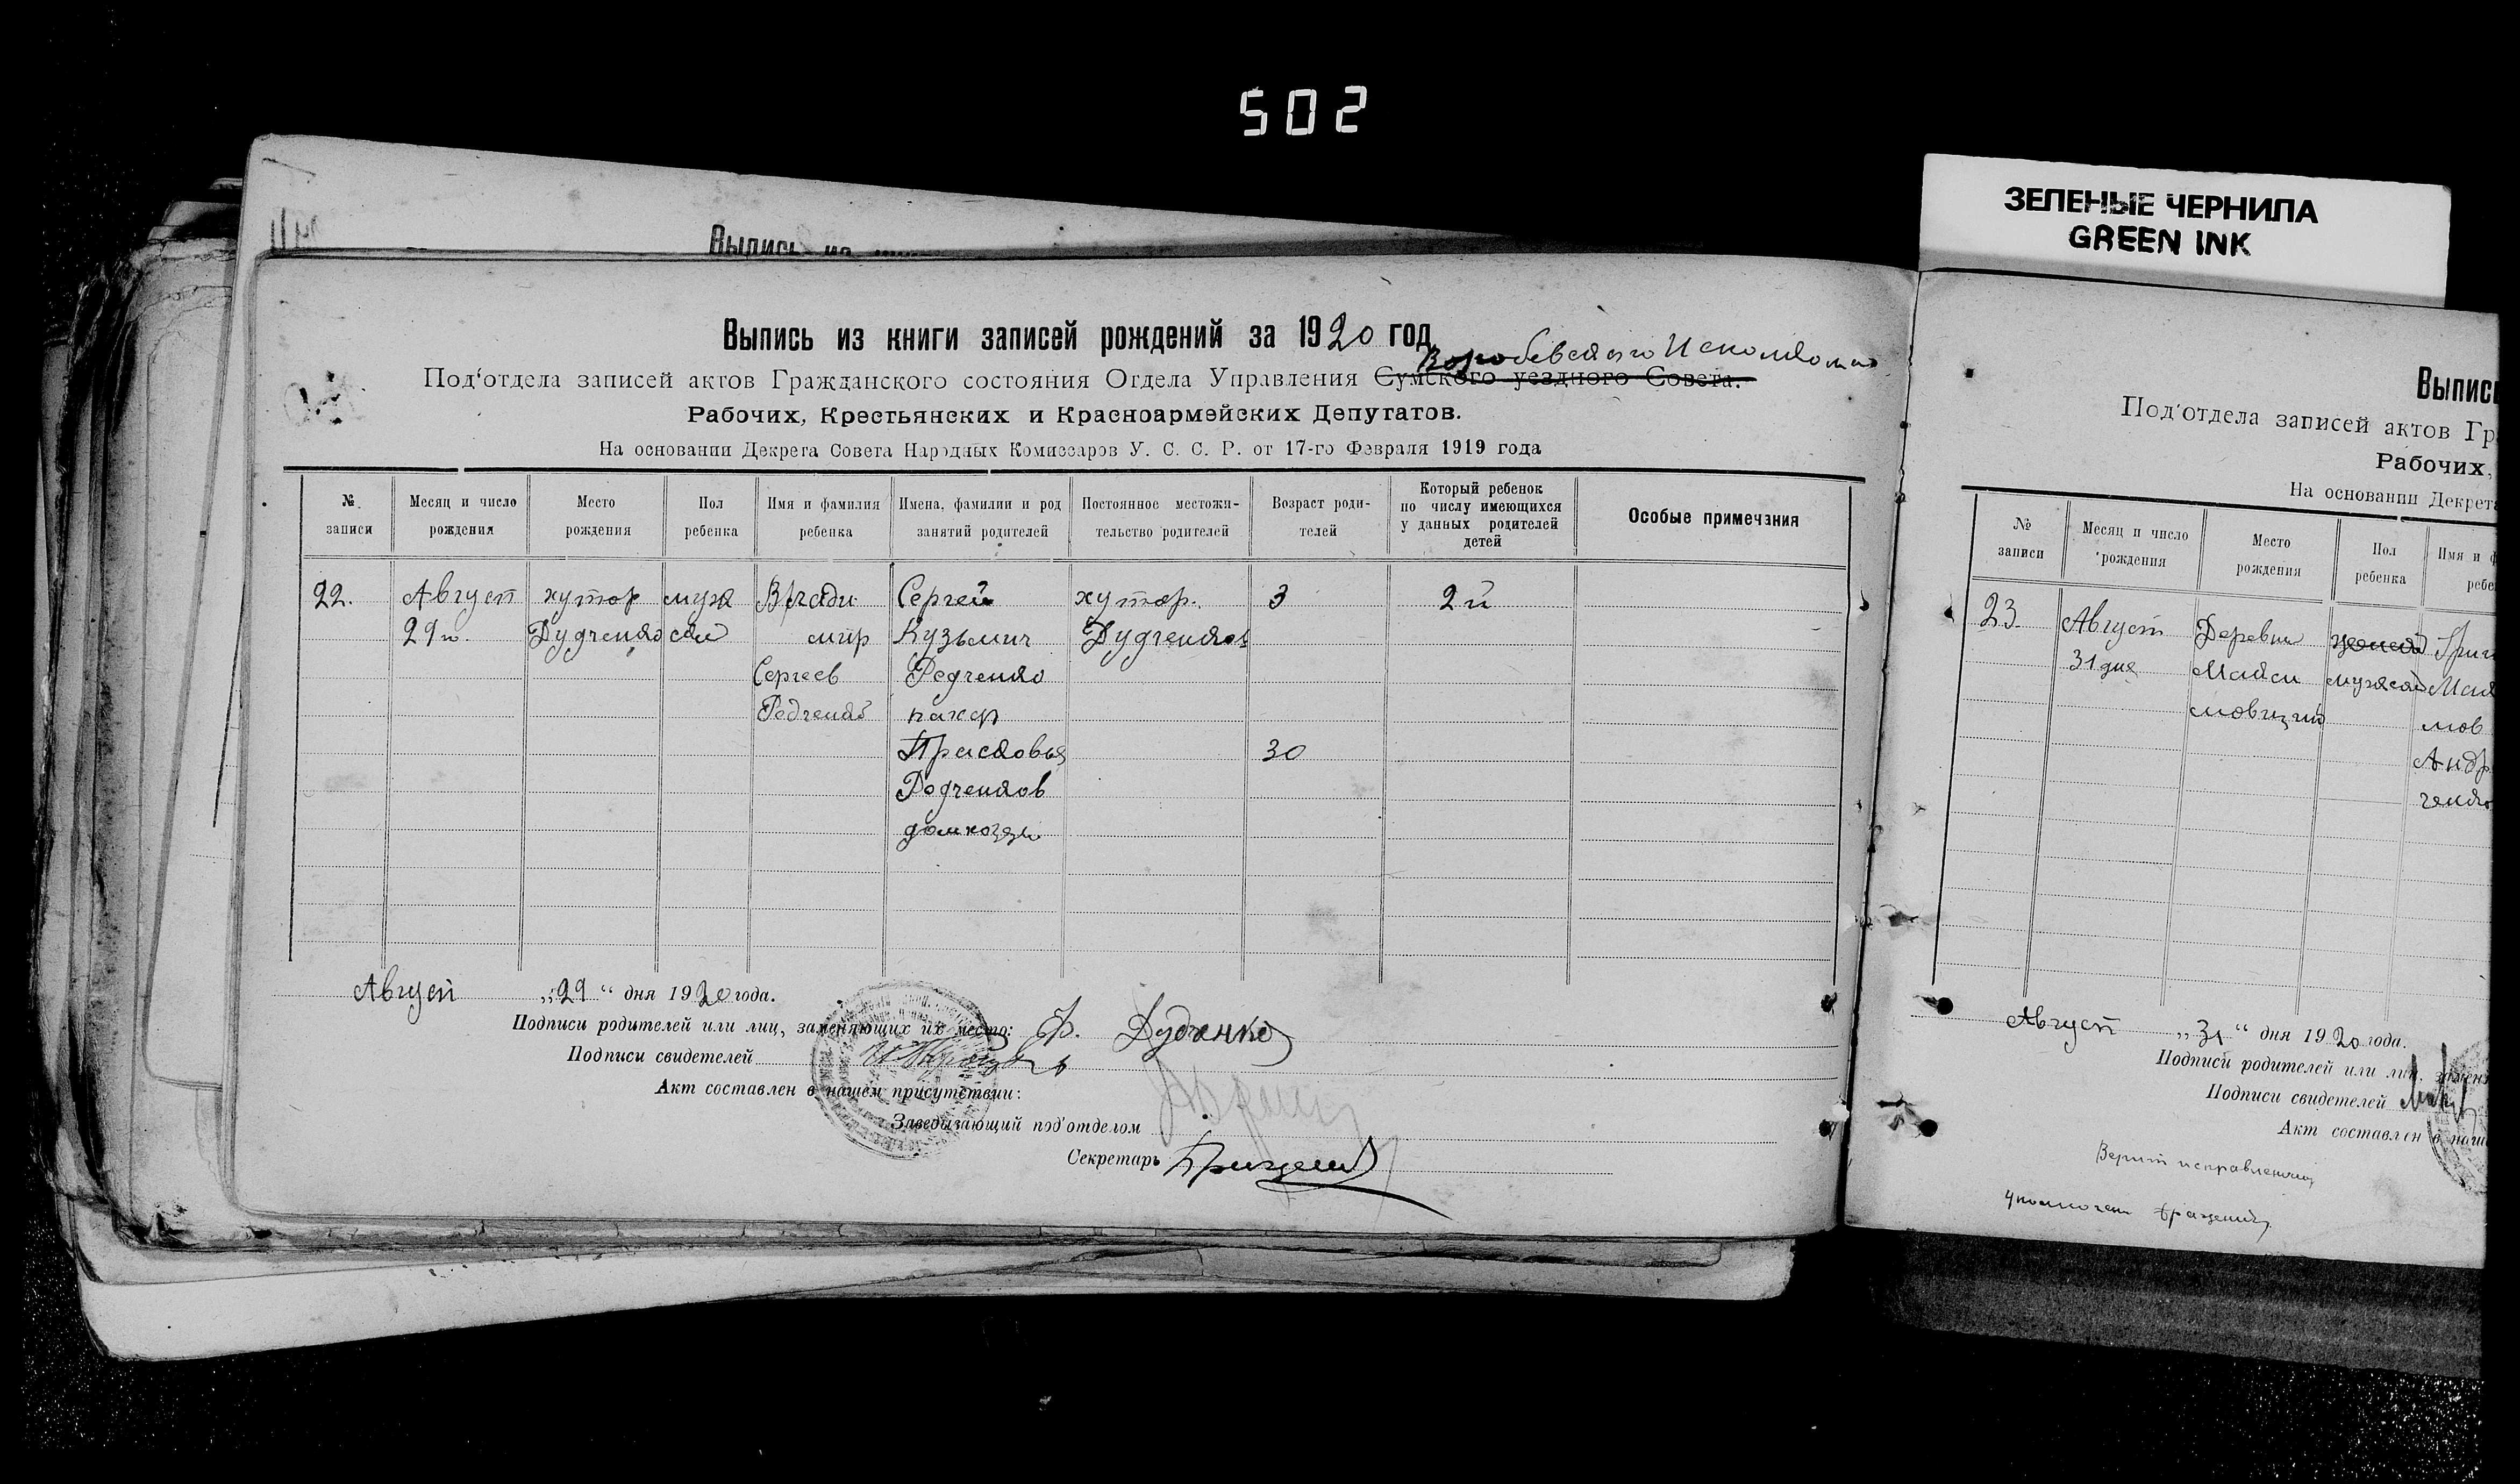 502
ЗЕЛЕНЫЕ ЧЕРНИЛА
GREEN INK
Выпись из
Выпись из книги записей рождений за 1920 год
Воробевского Исполкома
Под'отдела записей актов Гражданского состояния Отдела Управления Сумского уездного Совета.
Рабочих, Крестьянских и Красноармейских Депутатов.
На основании Декрета Совета Народных Комиссаров У. С. С. Р. от 17-го Февраля 1919 года
№ записи
Месяц и число рождения
Место рождения
Пол ребенка
Имя и фамилия ребенка
Имена, фамилии и род занятий родителей
Постоянное местожительство родителей
Возраст родителей
Который ребенок по числу имеющихся у данных родителей детей
Особые примечания
22. Август хутор муж Влади Сергей хутор. 3 2й
29го. Дудченко ской мир Кузьмич Дудченков
Сергеев Редченко
Редченко пахар
Прасковья 30
Редченков
домхозяи
Август „29“ дня 1920 года.
Подписи родителей или лиц, заменяющих их место: Ф. Дудченко
Подписи свидетелей
Акт составлен в нашем присутствии:
Заведывающий под'отделом
Секретарь
Выпись
Под'отдела записей актов Гр
Рабочих,
На основании Декрета
№ записи
Месяц и число рождения
Место рождения
Пол ребенка
Имя и ф
ребе
23. Август Деревня женской Григ
31 дня Макси мужской Мак
мовщин мов
Андр
ченко
Август „31“ дня 1920 года.
Подписи родителей или лиц, замен
Подписи свидетелей
Акт составлен в наше
Верит исправленому